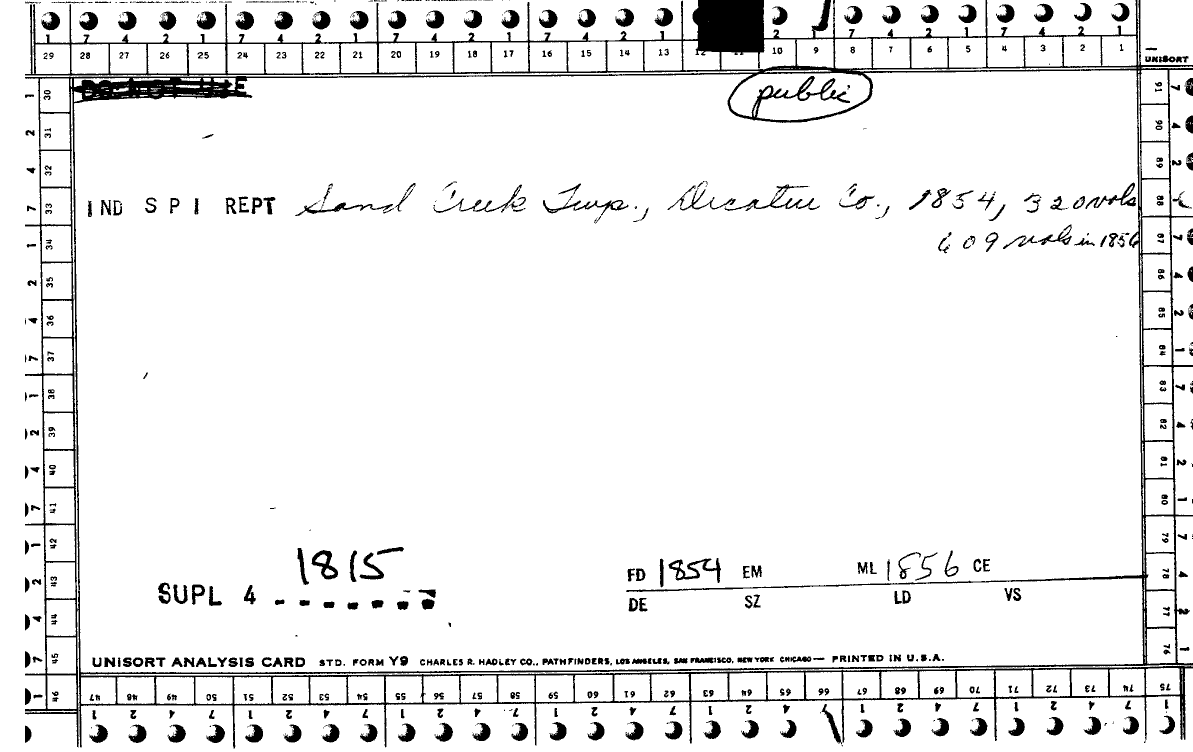 1 7 4 2 1 7 4 2 1 7 4 2 1 7 4 2 1 2 1 7 4 2 1 7 4 2 1
29 28 27 26 25 24 23 22 21 20 19 18 17 16 15 14 13 12 10 9 8 7 6 5 4 3 2 1
UNISORT
DO NOT USE
public
IND S P I REPT Sand Creek Twp., Decatur Co., 1854, 320 vols
609 vols in 1856
1815
SUPL 4
FD 1854 EM ML 1856 CE
DE SZ LD VS
UNISORT ANALYSIS CARD STD. FORM Y9 CHARLES R. HADLEY CO., PATHFINDERS, LOS ANGELES, SAN FRANCISCO, NEW YORK CHICAGO — PRINTED IN U.S.A.
30 31 32 33 34 35 36 37 38 39 40 41 42 43 44 45 46
91 90 89 88 87 86 85 84 83 82 81 80 79 78 77 76
47 48 49 50 51 52 53 54 55 56 57 58 59 60 61 62 63 64 65 66 67 68 69 70 71 72 73 74 75